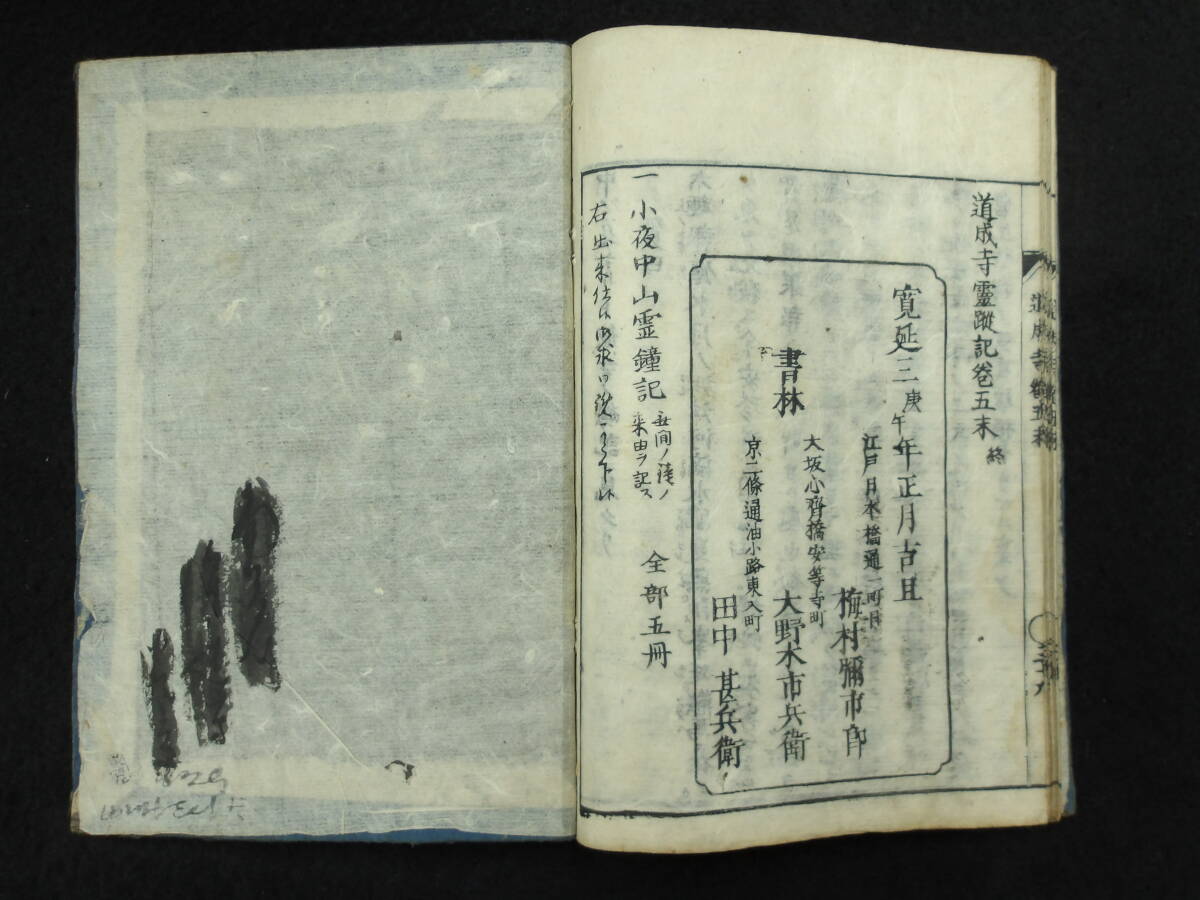 道成寺靈蹤記卷五末 終
寛延三庚午年正月吉旦
江戸日本橋通二町目
梅村彌市郎
書林
大坂心齊橋安等寺町
大野木市兵衛
京二條通油小路東入町
田中甚兵衛
一 小夜中山霊鐘記 無間ノ鐘ノ
来由ヲ記ス 全部五冊
右出来仕候御求